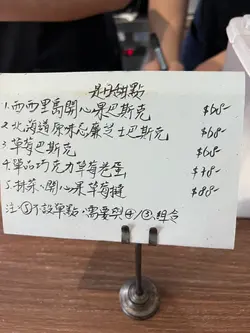 是日甜點
1. 西西里島開心果巴斯克 $68-
2. 北海道原味忌廉芝士巴斯克 $68-
3. 草莓巴斯克 $68-
4. 單品巧克力草莓卷蛋 $78-
5. 抹茶、開心果草莓撻 $88-
注: ⑤不設單點,需要與④/③組合